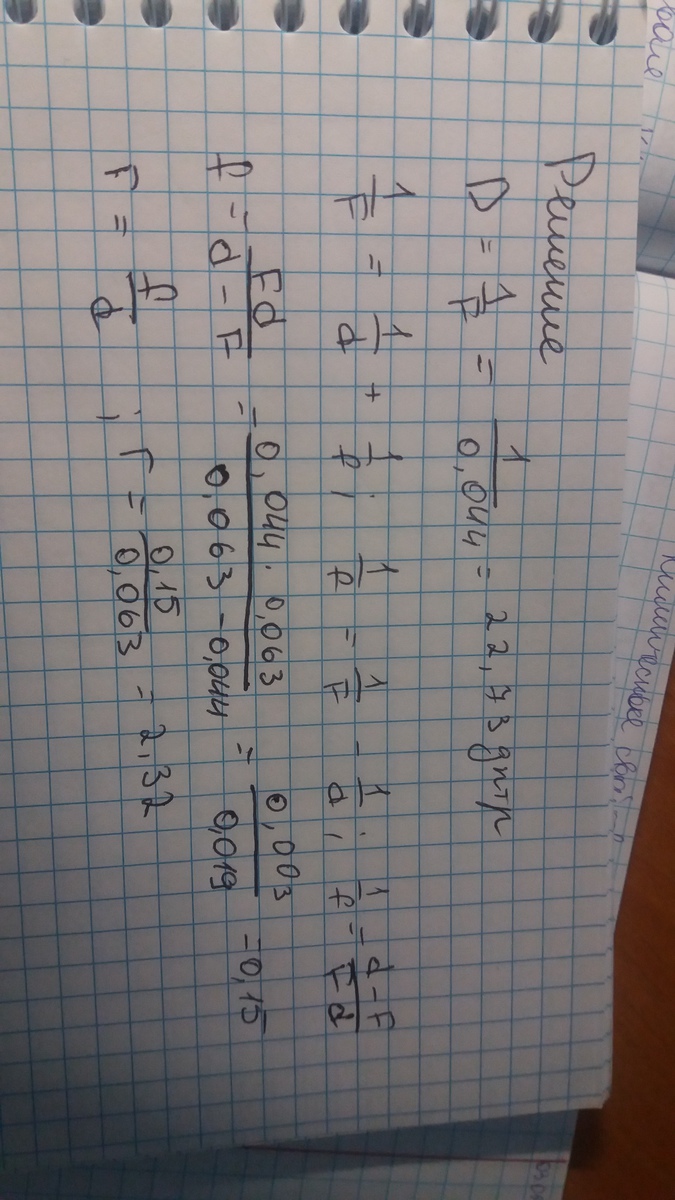 Решение
D = 1/F = 1/0,044 = 22,73 дптр
1/F = 1/d + 1/f; 1/f = 1/F - 1/d; 1/f = d-F/Fd
f = Fd/d-F = 0,044·0,063/0,063-0,044 = 0,003/0,019 = 0,15
Г = f/d; Г = 0,15/0,063 = 2,32